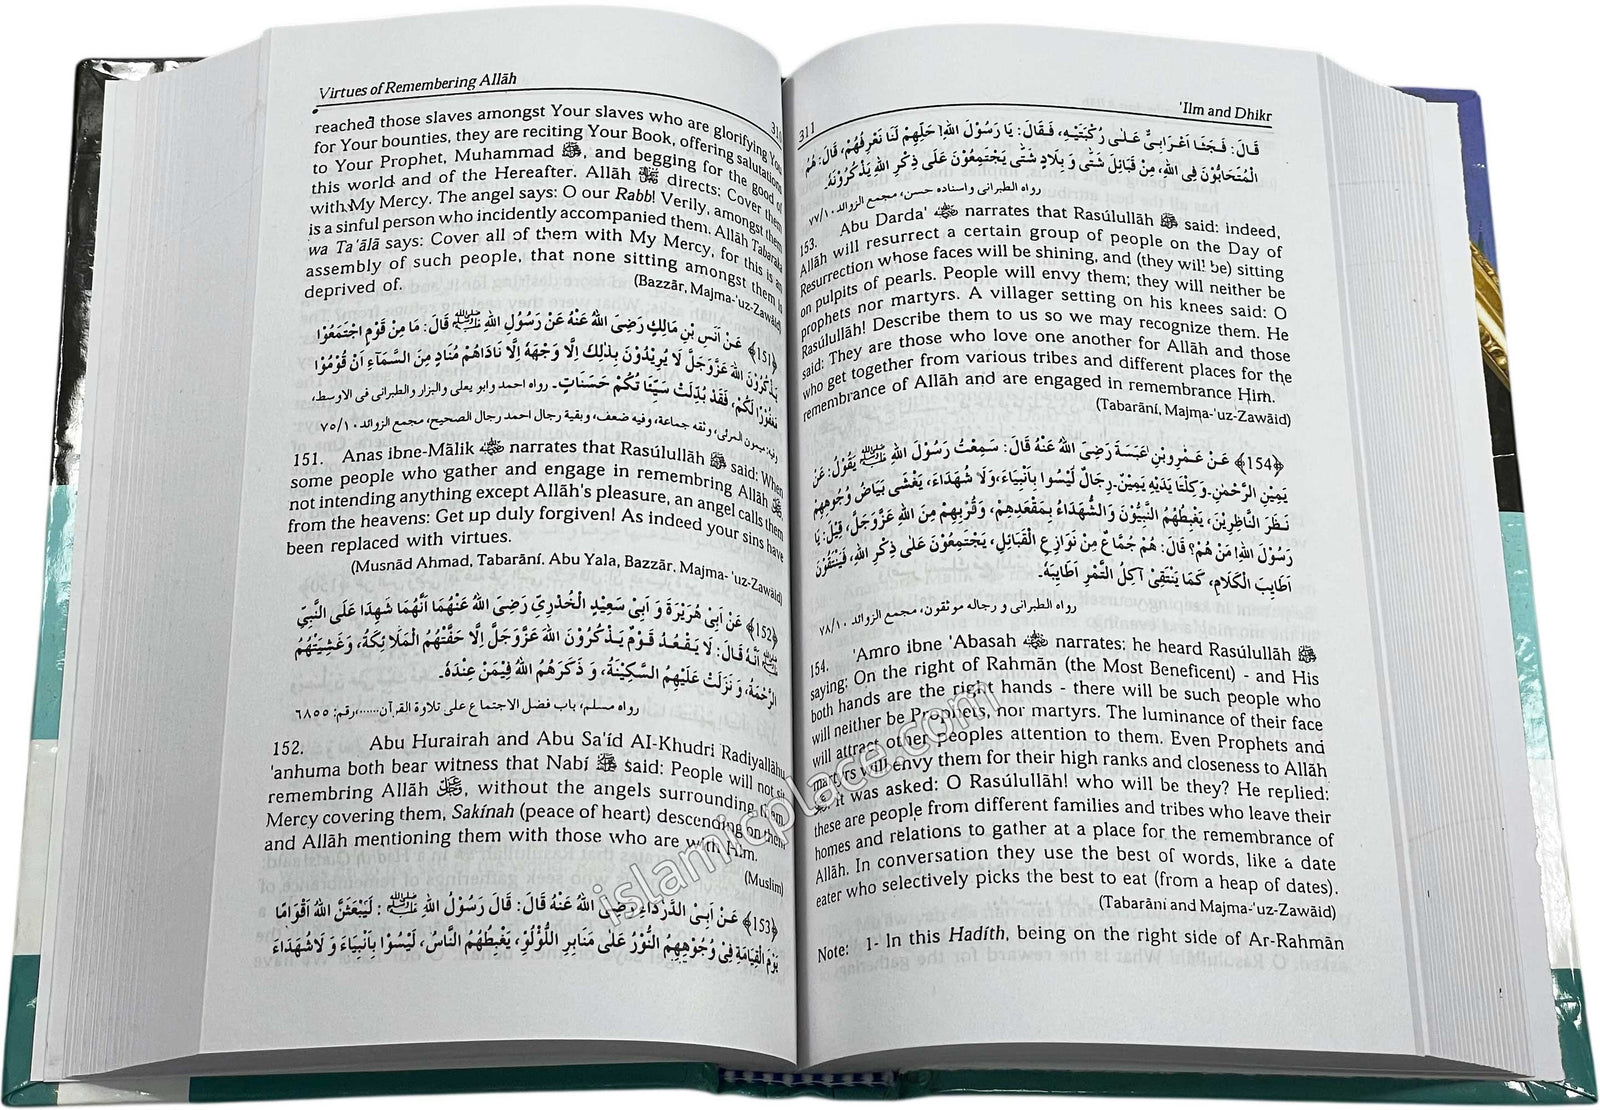 Virtues of Remembering Allāh
310
reached those slaves amongst Your slaves who are glorifying You
for Your bounties, they are reciting Your Book, offering salutations
to Your Prophet, Muhammad ﷺ, and begging for the good of
this world and of the Hereafter. Allāh directs: Cover them
with My Mercy. The angel says: O our Rabb! Verily, amongst them
is a sinful person who incidently accompanied them. Allāh Tabaraka
wa Ta'ālā says: Cover all of them with My Mercy, for this is an
assembly of such people, that none sitting amongst them is
deprived of.
(Bazzār, Majma-'uz-Zawāid)
﴿151﴾ عَنْ اَنَسِ بْنِ مَالِكٍ رَضِىَ اللهُ عَنْهُ عَنْ رَسُوْلِ اللهِ ﷺ قَالَ: مَا مِنْ قَوْمٍ اجْتَمَعُوْا
يَذْكُرُوْنَ اللهَ عَزَّوَجَلَّ لَا يُرِيْدُوْنَ بِذٰلِكَ اِلَّا وَجْهَهُ اِلَّا نَادَاهُمْ مُنَادٍ مِنَ السَّمَآءِ اَنْ قُوْمُوْا
مَغْفُوْرًا لَكُمْ، فَقَدْ بُدِّلَتْ سَيِّئَاتُكُمْ حَسَنَاتٍ۔ رواه احمد وابو يعلى والبزار والطبرانى فى الاوسط،
وفيه: ميمون المرئى، وثقه جماعة، وفيه ضعف، وبقية رجال احمد رجال الصحيح، مجمع الزوائد ٧٥/١٠
151. Anas ibne-Mālik narrates that Rasúlullāh ﷺ said: When
some people who gather and engage in remembring Allāh
not intending anything except Allāh's pleasure, an angel calls them
from the heavens: Get up duly forgiven! As indeed your sins have
been replaced with virtues.
(Musnād Ahmad, Tabarāní. Abu Yala, Bazzār, Majma- 'uz-Zawāid)
﴿152﴾ عَنْ اَبِىْ هُرَيْرَةَ وَ اَبِىْ سَعِيْدٍ الْخُدْرِيِّ رَضِىَ اللهُ عَنْهُمَا اَنَّهُمَا شَهِدَا عَلَى النَّبِيِّ
ﷺ اَنَّهُ قَالَ: لَا يَقْعُدُ قَوْمٌ يَذْكُرُوْنَ اللهَ عَزَّوَجَلَّ اِلَّا حَفَّتْهُمُ الْمَلَائِكَةُ، وَغَشِيَتْهُمُ
الرَّحْمَةُ، وَ نَزَلَتْ عَلَيْهِمُ السَّكِيْنَةُ، وَ ذَكَرَهُمُ اللهُ فِيْمَنْ عِنْدَهُ۔
رواه مسلم، باب فضل الاجتماع على تلاوة القرآن.....،رقم: ٦٨٥٥
152. Abu Hurairah and Abu Sa'íd Al-Khudri Radiyallāhu
'anhuma both bear witness that Nabí ﷺ said: People will not sit
remembring Allāh, without the angels surrounding them
Mercy covering them, Sakínah (peace of heart) descending on them
and Allāh mentioning them with those who are with Him.
(Muslim)
﴿153﴾ عَنْ اَبِى الدَّرْدَاءِ رَضِىَ اللهُ عَنْهُ قَالَ: قَالَ رَسُوْلُ اللهِ ﷺ : لَيَبْعَثَنَّ اللهُ اَقْوَامًا
يَوْمَ الْقِيَامَةِ فِىْ وُجُوْهِهِمُ النُّوْرُ عَلٰى مَنَابِرِ اللُّؤْلُؤِ، يَغْبِطُهُمُ النَّاسُ، لَيْسُوْا بِاَنْبِيَاءَ وَ لَا شُهَدَاءَ
311
'Ilm and Dhikr
قَالَ: فَجَثَا اَعْرَابِىٌّ عَلٰى رُكْبَتَيْهِ، فَقَالَ: يَا رَسُوْلَ اللهِ! حَلِّهِمْ لَنَا نَعْرِفُهُمْ، قَالَ: هُمُ
الْمُتَحَابُّوْنَ فِى اللهِ، مِنْ قَبَائِلَ شَتّٰى وَ بِلَادٍ شَتّٰى يَجْتَمِعُوْنَ عَلٰى ذِكْرِ اللهِ يَذْكُرُوْنَهُ۔
رواه الطبرانى واسناده حسن، مجمع الزوائد ٧٧/١٠
153. Abu Darda' narrates that Rasúlullāh ﷺ said: indeed,
Allāh will resurrect a certain group of people on the Day of
Resurrection whose faces will be shining, and (they will be) sitting
on pulpits of pearls. People will envy them; they will neither be
prophets nor martyrs. A villager setting on his knees said: O
Rasúlullāh! Describe them to us so we may recognize them. He
said: They are those who love one another for Allāh and those
who get together from various tribes and different places for the
remembrance of Allāh and are engaged in remembrance Him.
(Tabarāní, Majma-'uz-Zawāid)
﴿154﴾ عَنْ عَمْرِو بْنِ عَبَسَةَ رَضِىَ اللهُ عَنْهُ قَالَ: سَمِعْتُ رَسُوْلَ اللهِ ﷺ يَقُوْلُ: عَنْ
يَمِيْنِ الرَّحْمٰنِ۔وَكِلْتَا يَدَيْهِ يَمِيْنٌ۔رِجَالٌ لَيْسُوْا بِاَنْبِيَاءَ،وَلَا شُهَدَاءَ، يَغْشٰى بَيَاضُ وُجُوْهِهِمْ
نَظَرَ النَّاظِرِيْنَ، يَغْبِطُهُمُ النَّبِيُّوْنَ وَالشُّهَدَاءُ بِمَقْعَدِهِمْ، وَقُرْبِهِمْ مِنَ اللهِ عَزَّوَجَلَّ، قِيْلَ: يَا
رَسُوْلَ اللهِ! مَنْ هُمْ؟ قَالَ: هُمْ جُمَّاعٌ مِنْ نَوَازِعِ الْقَبَائِلِ، يَجْتَمِعُوْنَ عَلٰى ذِكْرِ اللهِ، فَيَنْتَقُوْنَ
اَطَايِبَ الْكَلَامِ، كَمَا يَنْتَقِىْ آكِلُ التَّمْرِ اَطَايِبَهُ۔
رواه الطبرانى و رجاله موثقون، مجمع الزوائد ٧٨/١٠
154. 'Amro ibne 'Abasah narrates: he heard Rasúlullāh ﷺ
saying: On the right of Rahmān (the Most Beneficent) - and His
both hands are the right hands - there will be such people who
will neither be Prophets, nor martyrs. The luminance of their face
will attract other peoples attention to them. Even Prophets and
martyrs will envy them for their high ranks and closeness to Allāh
. It was asked: O Rasúlullāh! who will be they? He replied:
these are people from different families and tribes who leave their
homes and relations to gather at a place for the remembrance of
Allāh. In conversation they use the best of words, like a date
eater who selectively picks the best to eat (from a heap of dates).
(Tabarāni and Majma-'uz-Zawāid)
Note: 1- In this Hadíth, being on the right side of Ar-Rahmān
islamicplace.com